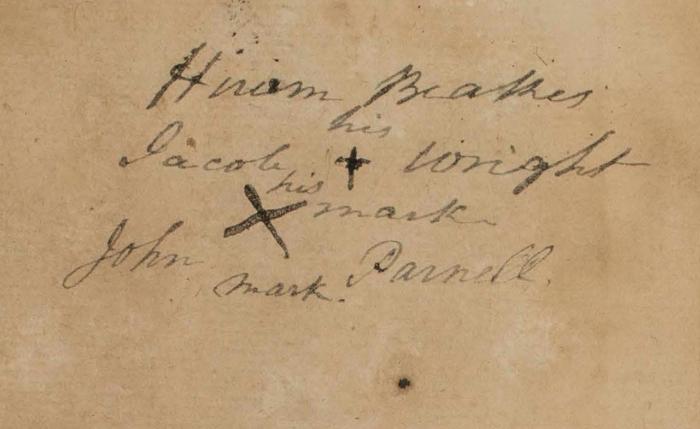 Hiram Beakes
his
Jacob + Wright
his
X mark
John Parnell.
mark.